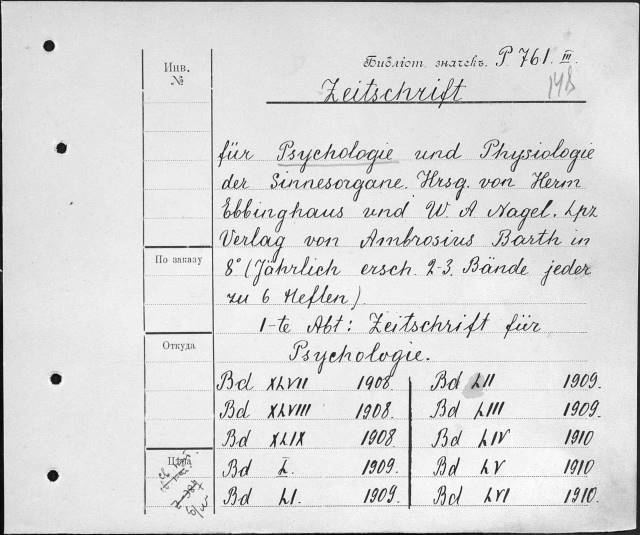 Библіот. значекъ. P 761. III.
148
Инв.
№
Zeitschrift
für Psychologie und Physiologie
der Sinnesorgane. Hrsg. von Herm
Ebbinghaus und W. A. Nagel. Lpz
Verlag von Ambrosius Barth in
8° (Jährlich ersch. 2-3. Bände jeder
zu 6 Heften).
1-te Abt: Zeitschrift für
Psychologie.
По заказу
Откуда
Цѣна
Bd XLVII 1908.
Bd XLVIII 1908.
Bd XLIX 1908.
Bd L. 1909.
Bd LI. 1909.
Bd LII 1909.
Bd LIII 1909.
Bd LIV 1910
Bd LV 1910
Bd LVI 1910.